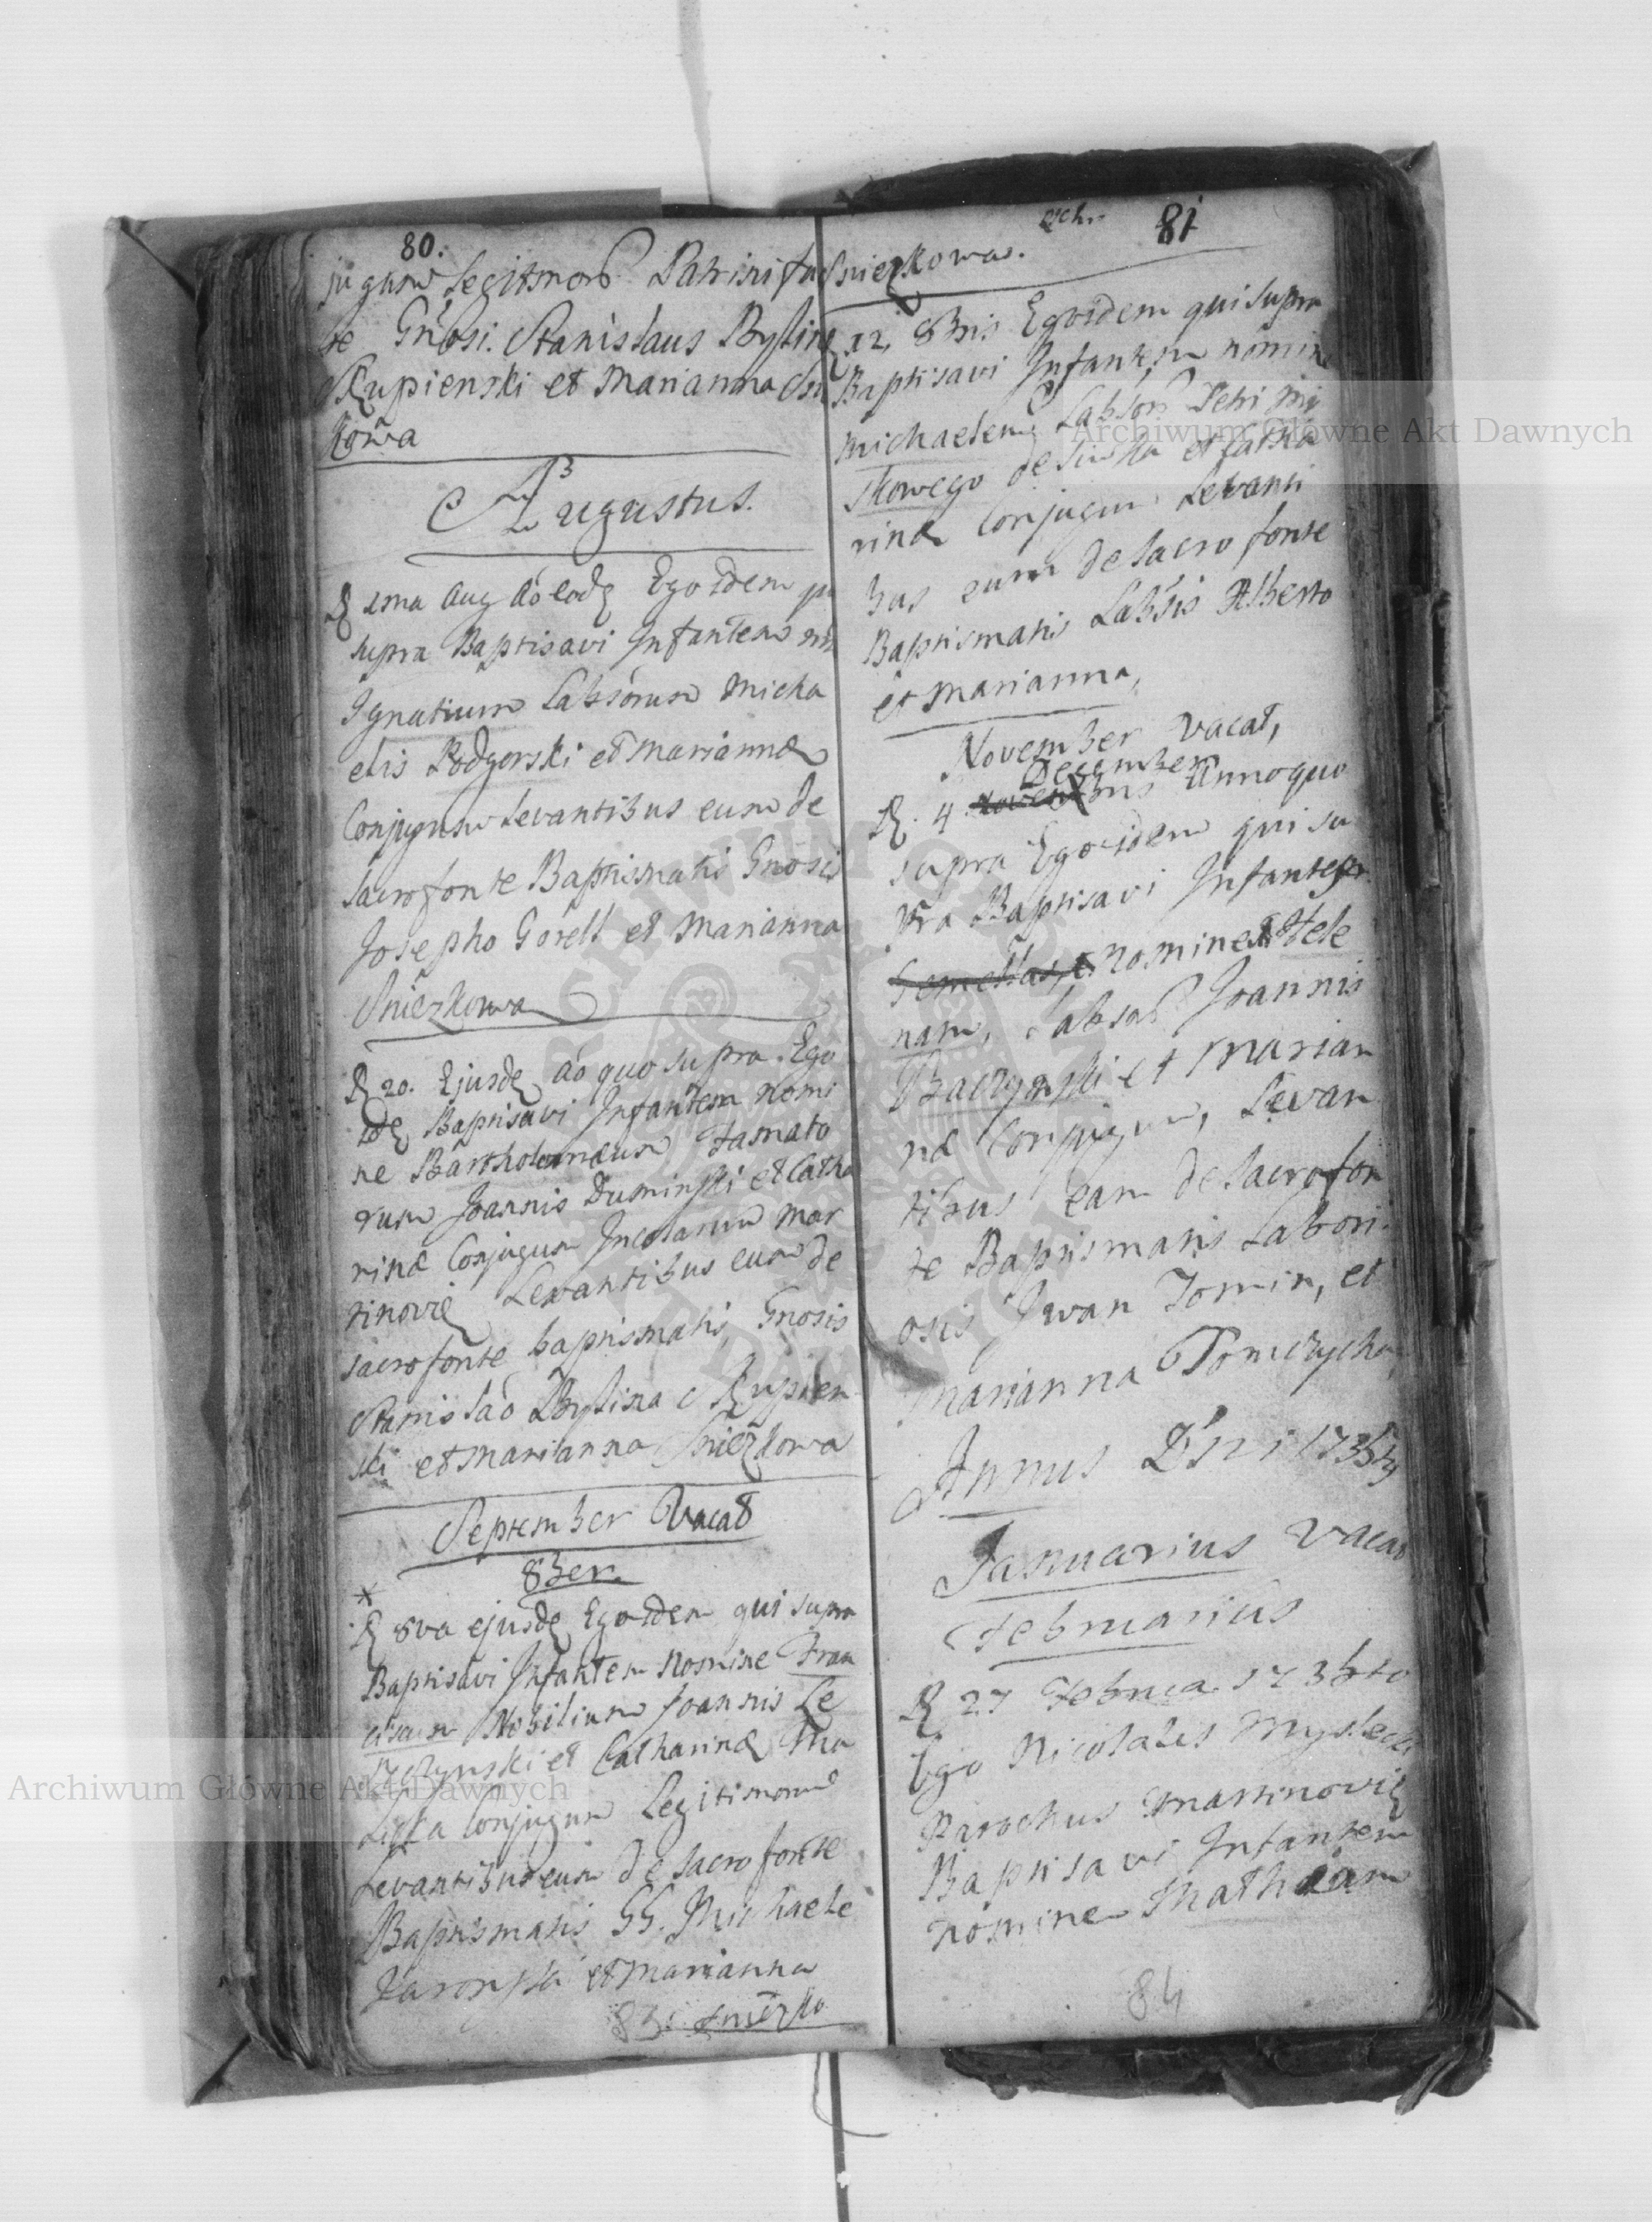 80.
jugum legitmor Patrini fue
re Gnosi. Stanislaus Bystry
Skupienski et Marianna Sni
kowa
Augustus.
D 1ma Aug Ao eode Ego idem qui
supra Baptisavi Infantem nne
Ignatium Labsorum Micha
elis Podgorski et Mariannæ
Conjugum Levantibus eum de
sacro fonte Baptismatis Gnosis
Josepho Gorell et Marianna
Sniezkowa
D 20. Ejusde Ao quo supra. Ego
ide Baptisavi Infantem Nomi
ne Bartholomæum Famato
rum Joannis Duminski et Catha
rinæ Conjugum Incolarum Mar
tinovie Levantibus eum de
sacro fonte baptismatis, Gnosis
Stanislao Bystry Skupien
ski et Marianna Sniezkowa
September Vacat
8ber.
*
D 8va ejusde Ego idem qui supra
Baptisavi Infantem Nomine Fran
ciscum Nobilium Joannis Le
szczynski et Catharinæ
Conjugum Legitimorum
Levantibus eum de sacro fonte
Baptismatis GG. Michaele
et Marianna
83. Sniezko
81
Sniezkowa.
12. 8bris Ego idem qui supra
Baptisavi Infantem nomine
Michaelem Labsor Petri
de et Catha
rinæ Conjugum Levanti
bus eum de sacro fonte
Baptismatis Labsis Alberto
et Marianna,
November Vacat,
December
D. 4 Novembris Anno quo
supra Ego idem qui su
pra Baptisavi Infantem
Gemellas, nomine Hele
nam, Labsor Joannis
Baczynski et Marian
næ Conjugum, Levan
tibus eam de sacro fon
te Baptismatis Labori
osis Iwan Tomin, et
Marianna Tomczycha
Annus Dni 173
Januarius Vacat
Februarius
D 27 Februa. 173
Ego Nicolaus Myslecki
Parochus Martinovie
Baptisavi Infantem
nomine Mathiam
84
Archiwum Główne Akt Dawnych
Archiwum Główne Akt Dawnych